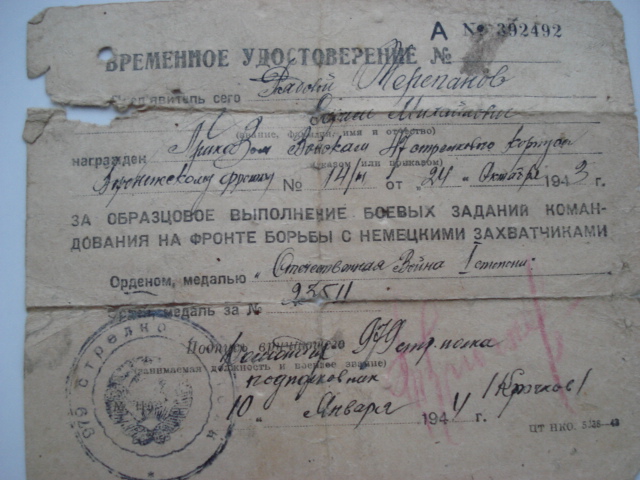 А № 392492
ВРЕМЕННОЕ УДОСТОВЕРЕНИЕ №
Пред'явитель сего Рядовой Черепанов
Михайлович
(звание, фамилия, имя и отчество)
награжден Приказом Войскам стрелкового корпуса
(указом или приказом)
Воронежскому фронту № 14/н от "24" Октября 1943 г.
ЗА ОБРАЗЦОВОЕ ВЫПОЛНЕНИЕ БОЕВЫХ ЗАДАНИЙ КОМАН-
ДОВАНИЯ НА ФРОНТЕ БОРЬБЫ С НЕМЕЦКИМИ ЗАХВАТЧИКАМИ
Орденом, медалью "Отечественная Война I степени"
медаль за № 93511
Подпись вручившего
979 стр. полка
(занимаемая должность и военное звание)
подполковник /Крючков/
"10" Января 1944 г.
ЦТ НКО.
979 СТРЕЛКО